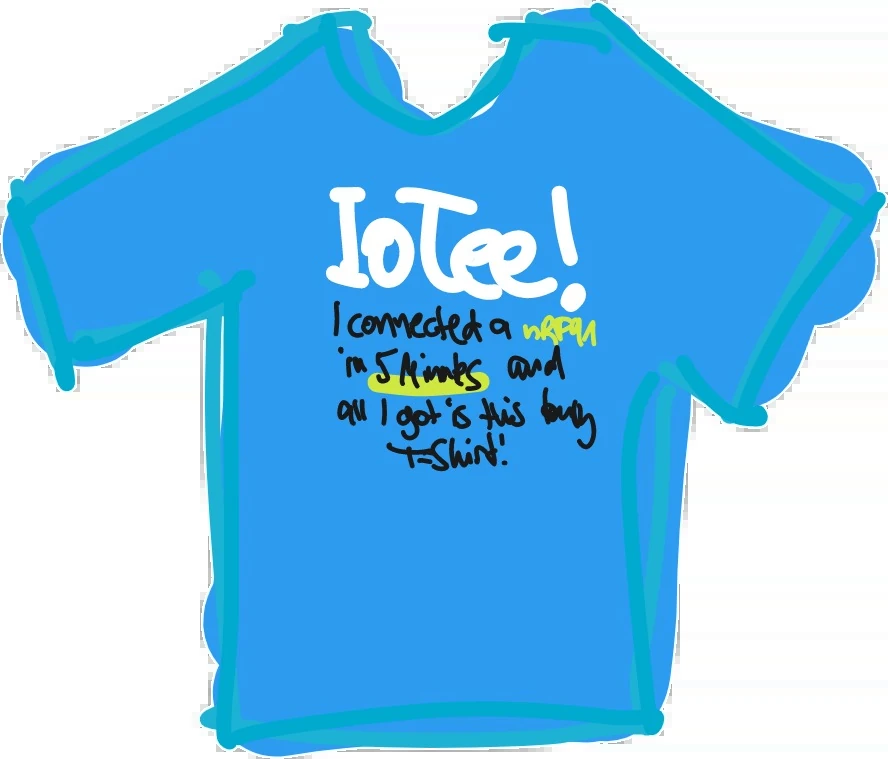 IoTee!
I connected a nRF91
in 5 Minutes and
all I got is this
T-Shirt!